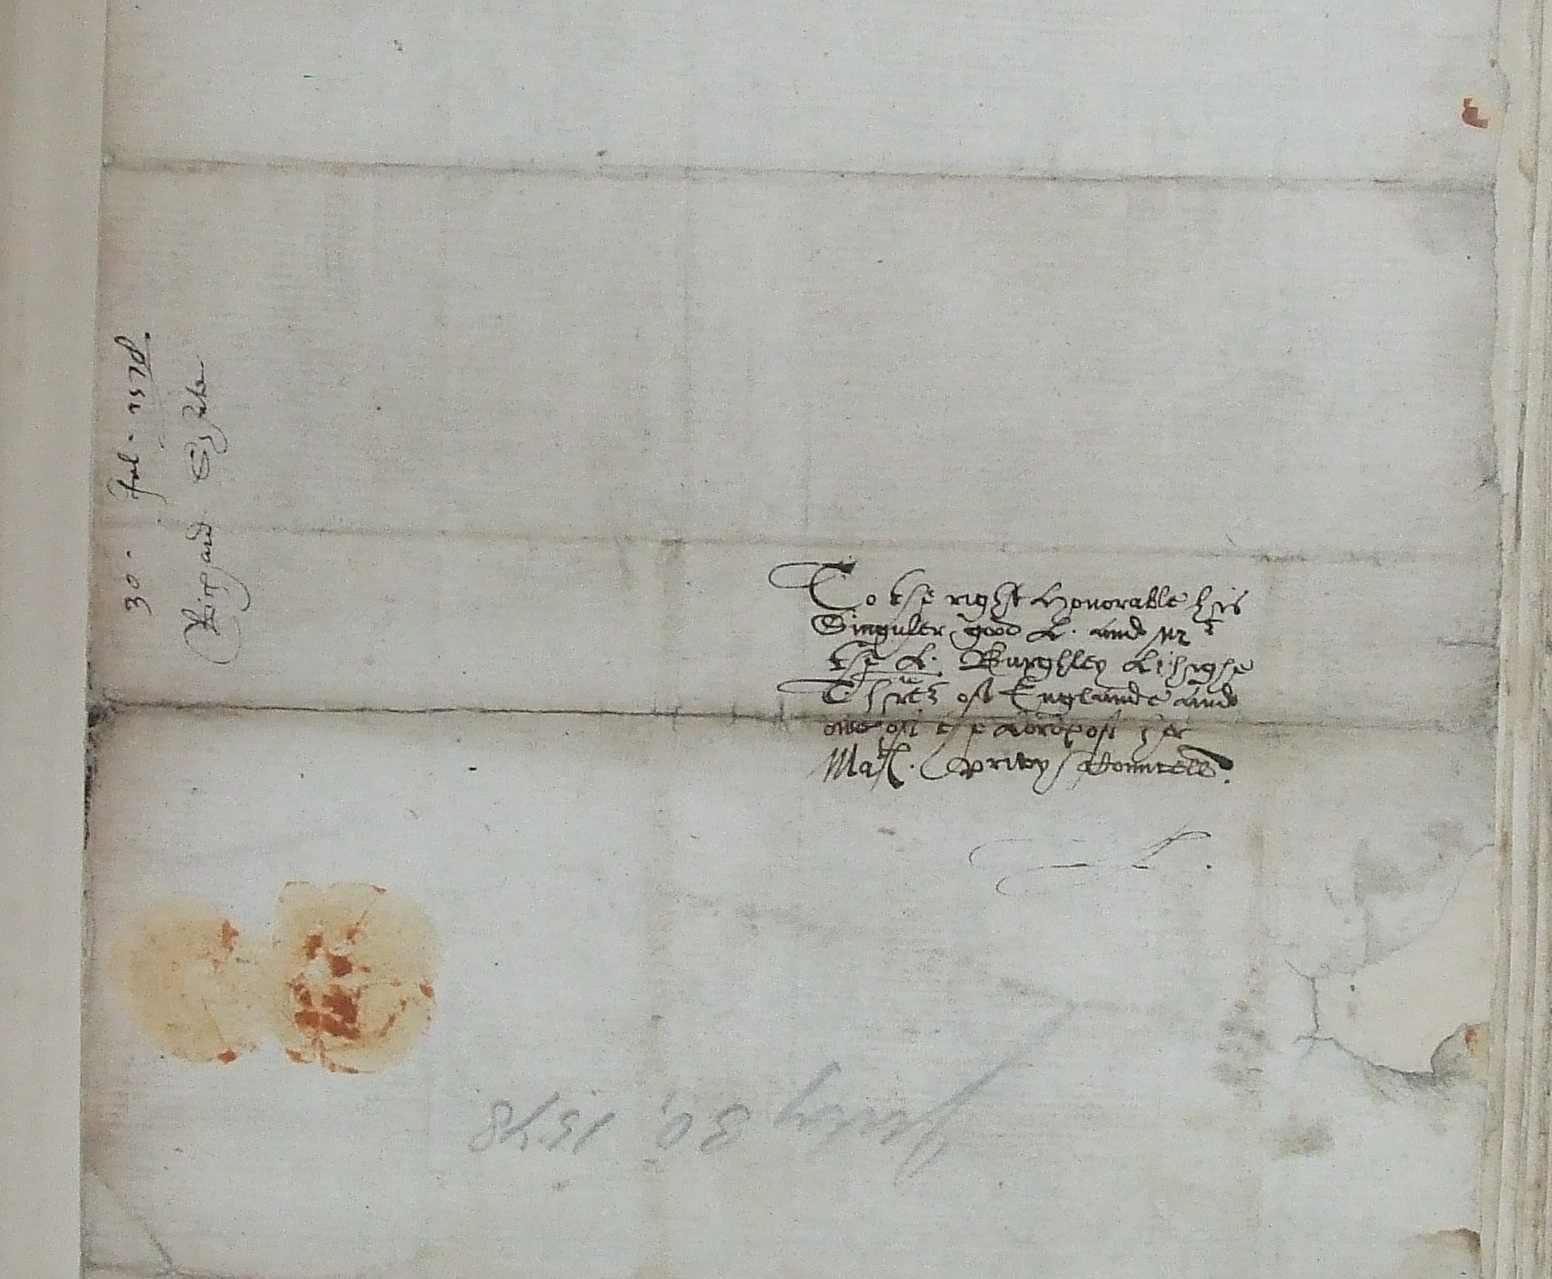 30 · Jul · 1578.
Richard
To the right honorable his
Singuler good L. and Mr
the L. Burghley L: highe
Thrẽr of Englande and
one of the Lordes of her
Matꝭ. Privy Counsell.
July 30. 1578